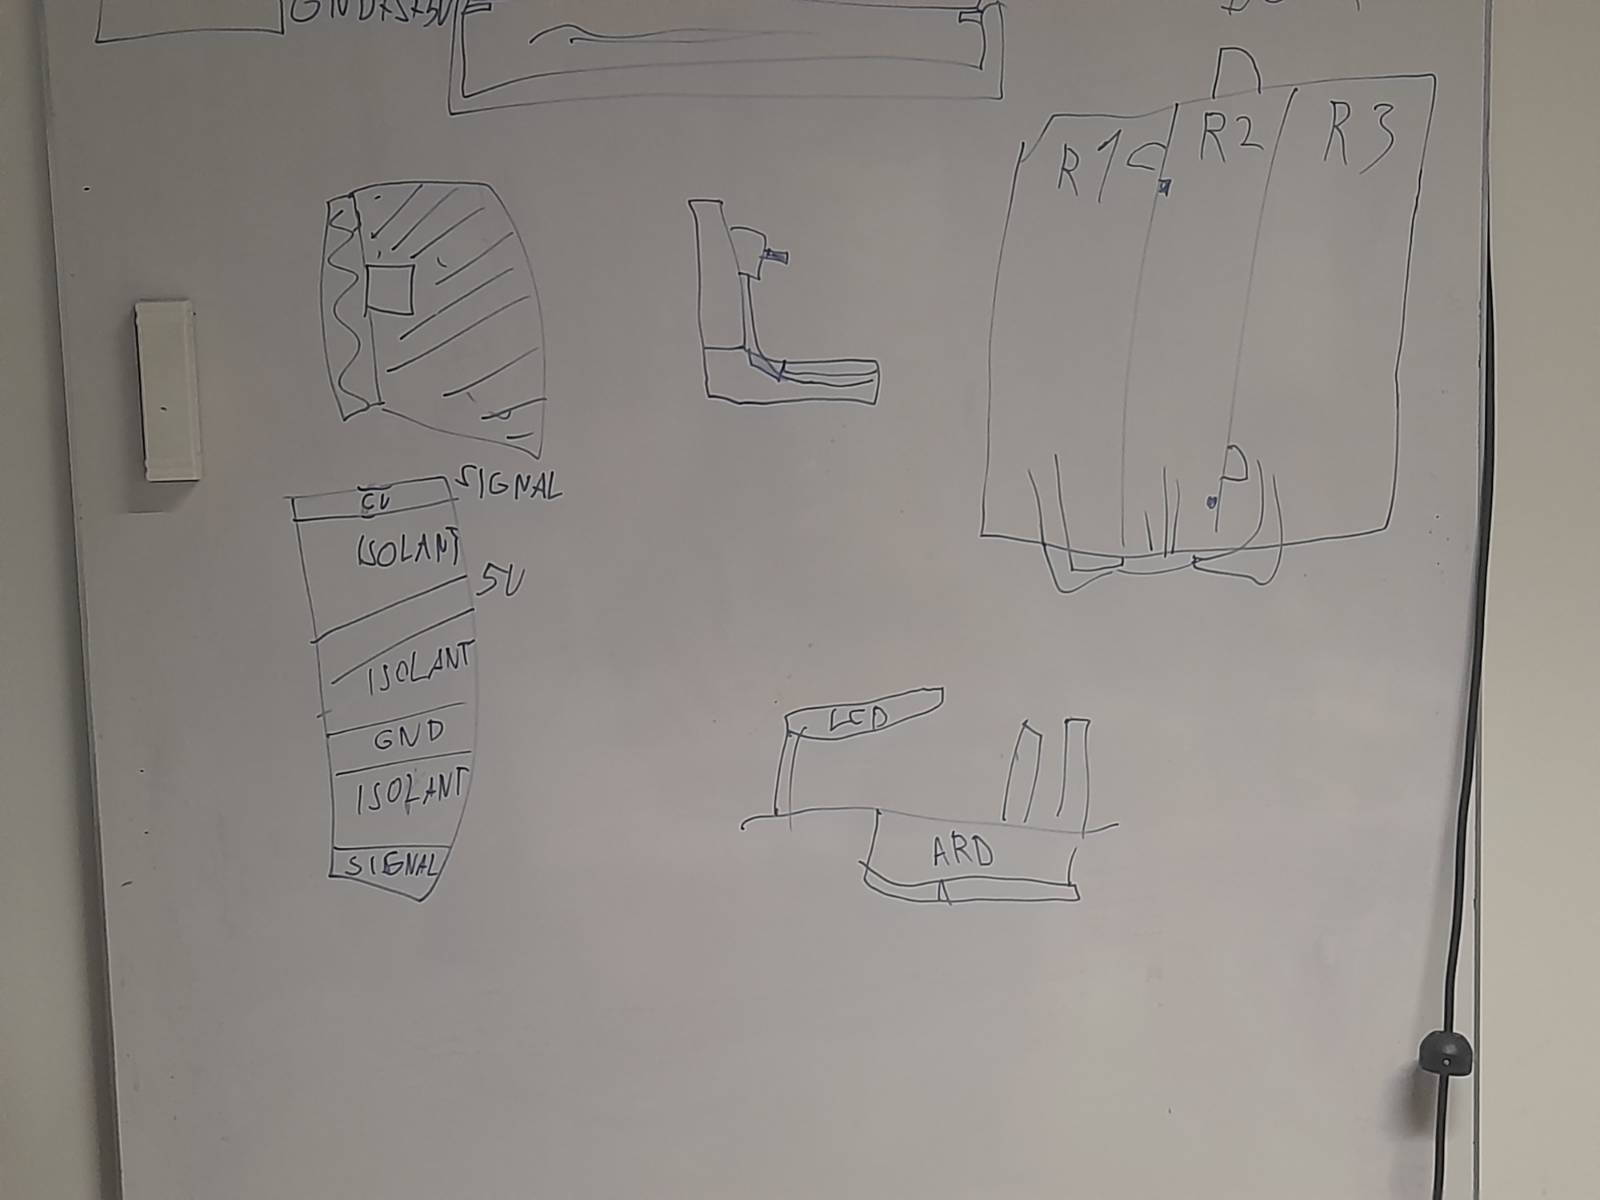 GND+S+5V
D
R1 R2 R3
SIGNAL
CU
ISOLANT
5V
ISOLANT
GND
ISOLANT
SIGNAL
LED
ARD